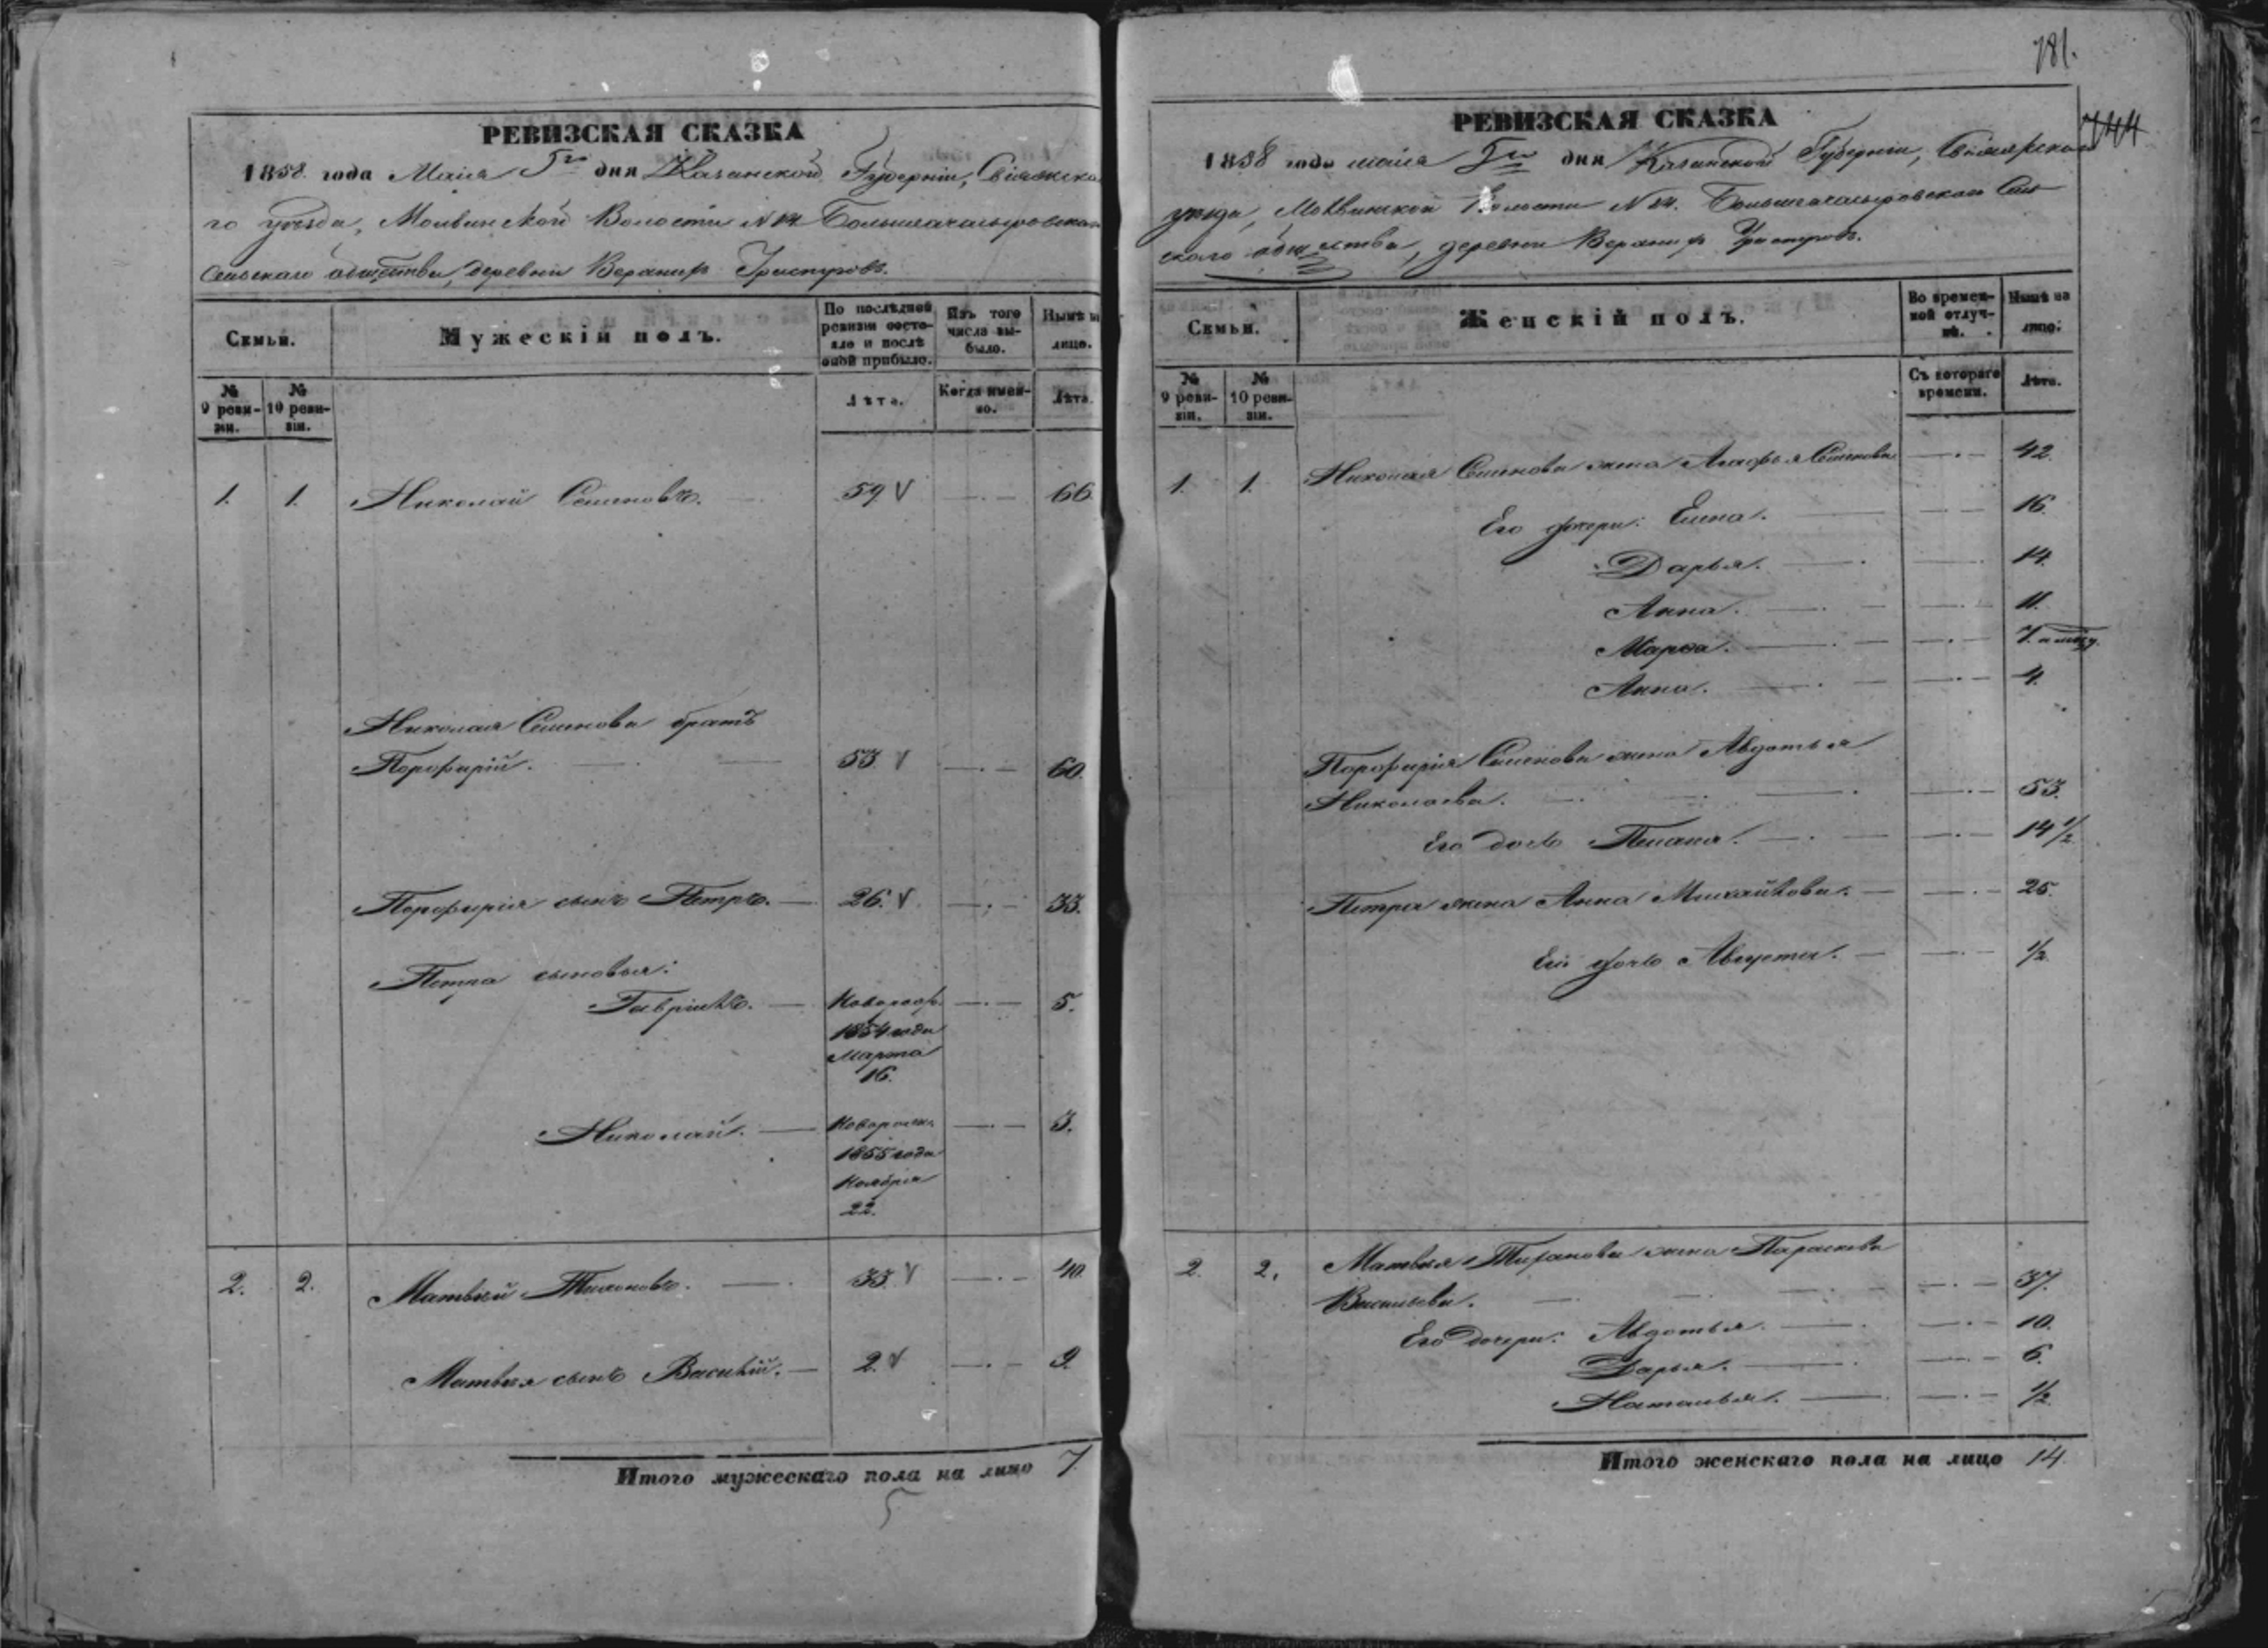 РЕВИЗСКАЯ СКАЗКА
1858 года Маія 5го дня Казанской Губерніи, Свіяжска-
го уѣзда, Молвинской Волости № 14
Сельскаго общества, деревни
Семьи.
Мужескій полъ.
По послѣдней ревизіи состояло и послѣ оной прибыло.
Изъ того числа выбыло.
Нынѣ на лицо.
№ 9 ревизіи.
№ 10 ревизіи.
Лѣта.
Когда именно.
Лѣта.
1. 1. Николай Семеновъ. 59 66
Николая Семенова братъ
Порофирій. 53 60.
Порофирія сынъ Петръ. 26. 33.
Петра сыновья:
Гаврiилъ. 5.
1854 года
Марта
16.
Николай. 3.
1855 года
Ноября
22.
2. 2. Матвѣй Тихоновъ. 33 40.
Матвѣя сынъ Василій. 2. 9.
Итого мужескаго пола на лицо 7.
5
781.
744
РЕВИЗСКАЯ СКАЗКА
1858 года маія 5го дня Казанской Губерніи,
уѣзда, Молвинской Волости № 14.
скаго общества, деревни
Семьи.
Женскій полъ.
Во временной отлучкѣ.
Нынѣ на лицо.
№ 9 ревизіи.
№ 10 ревизіи.
Съ котораго времени.
Лѣта.
1. 1. Николая Семенова жена Агафья Семенова 42.
Его дочери: Елена. 16.
Дарья. 14.
Анна. 11.
Марѳа. 7.
Анна. 4.
Порофирія Семенова жена Авдотья
Николаева. 53.
Его дочь 14 1/2
Петра жена Анна Михайлова. 25.
Его дочь Августа. 1/2
2. 2. Матвѣя Тихонова жена Параскева
Васильева. 37.
Его дочери: Авдотья. 10.
Дарья. 6.
Наталья. 1/2
Итого женскаго пола на лицо 14